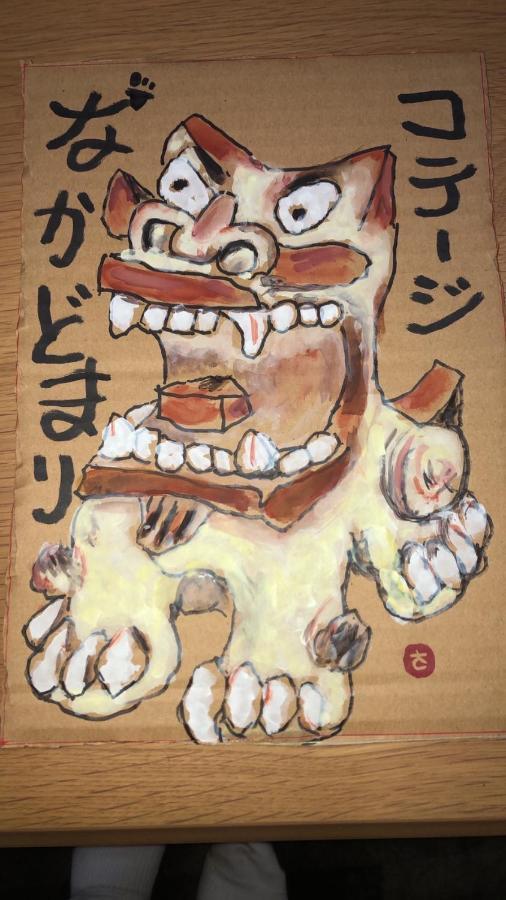 コテージ
なかどまり